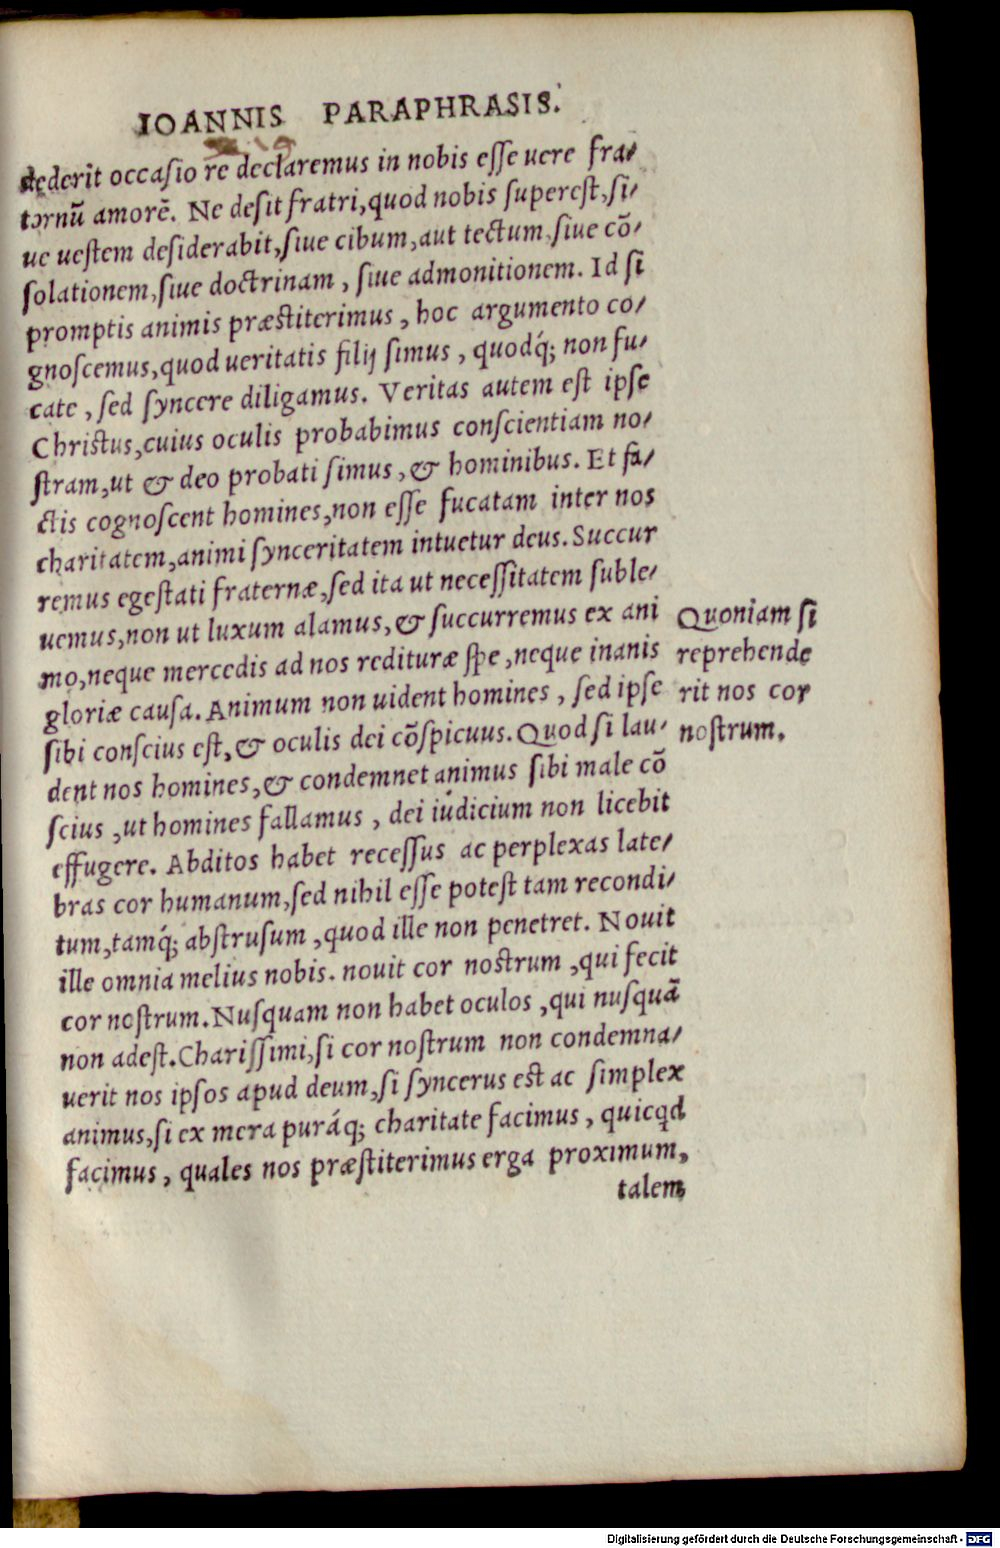 IOANNIS PARAPHRASIS.
dederit occasio re declaremus in nobis esse uere fra/
ternũ amorẽ. Ne desit fratri, quod nobis superest, si/
ue uestem desiderabit, siue cibum, aut tectum, siue cõ/
solationem, siue doctrinam, siue admonitionem. Id si
promptis animis præstiterimus, hoc argumento co/
gnoscemus, quod ueritatis filij simus, quodq́; non fu/
cate, sed syncere diligamus. Veritas autem est ipse
Christus, cuius oculis probabimus conscientiam no/
stram, ut & deo probati simus, & hominibus. Et fa/
ctis cognoscent homines, non esse fucatam inter nos
charitatem, animi synceritatem intuetur deus. Succur
remus egestati fraternæ, sed ita ut necessitatem suble/
uemus, non ut luxum alamus, & succurremus ex ani
mo, neque mercedis ad nos redituræ spe, neque inanis
gloriæ causa. Animum non uident homines, sed ipse
sibi conscius est, & oculis dei cõspicuus. Quod si lau/
dent nos homines, & condemnet animus sibi male cõ
scius, ut homines fallamus, dei iudicium non licebit
effugere. Abditos habet recessus ac perplexas late/
bras cor humanum, sed nihil esse potest tam recondi/
tum, tamq́; abstrusum, quod ille non penetret. Nouit
ille omnia melius nobis. nouit cor nostrum, qui fecit
cor nostrum. Nusquam non habet oculos, qui nusquã
non adest. Charissimi, si cor nostrum non condemna/
uerit nos ipsos apud deum, si syncerus est ac simplex
animus, si ex mera puráq; charitate facimus, quicqd
facimus, quales nos præstiterimus erga proximum,
talem
Quoniam si
reprehende
rit nos cor
nostrum.
Digitalisierung gefördert durch die Deutsche Forschungsgemeinschaft - DFG